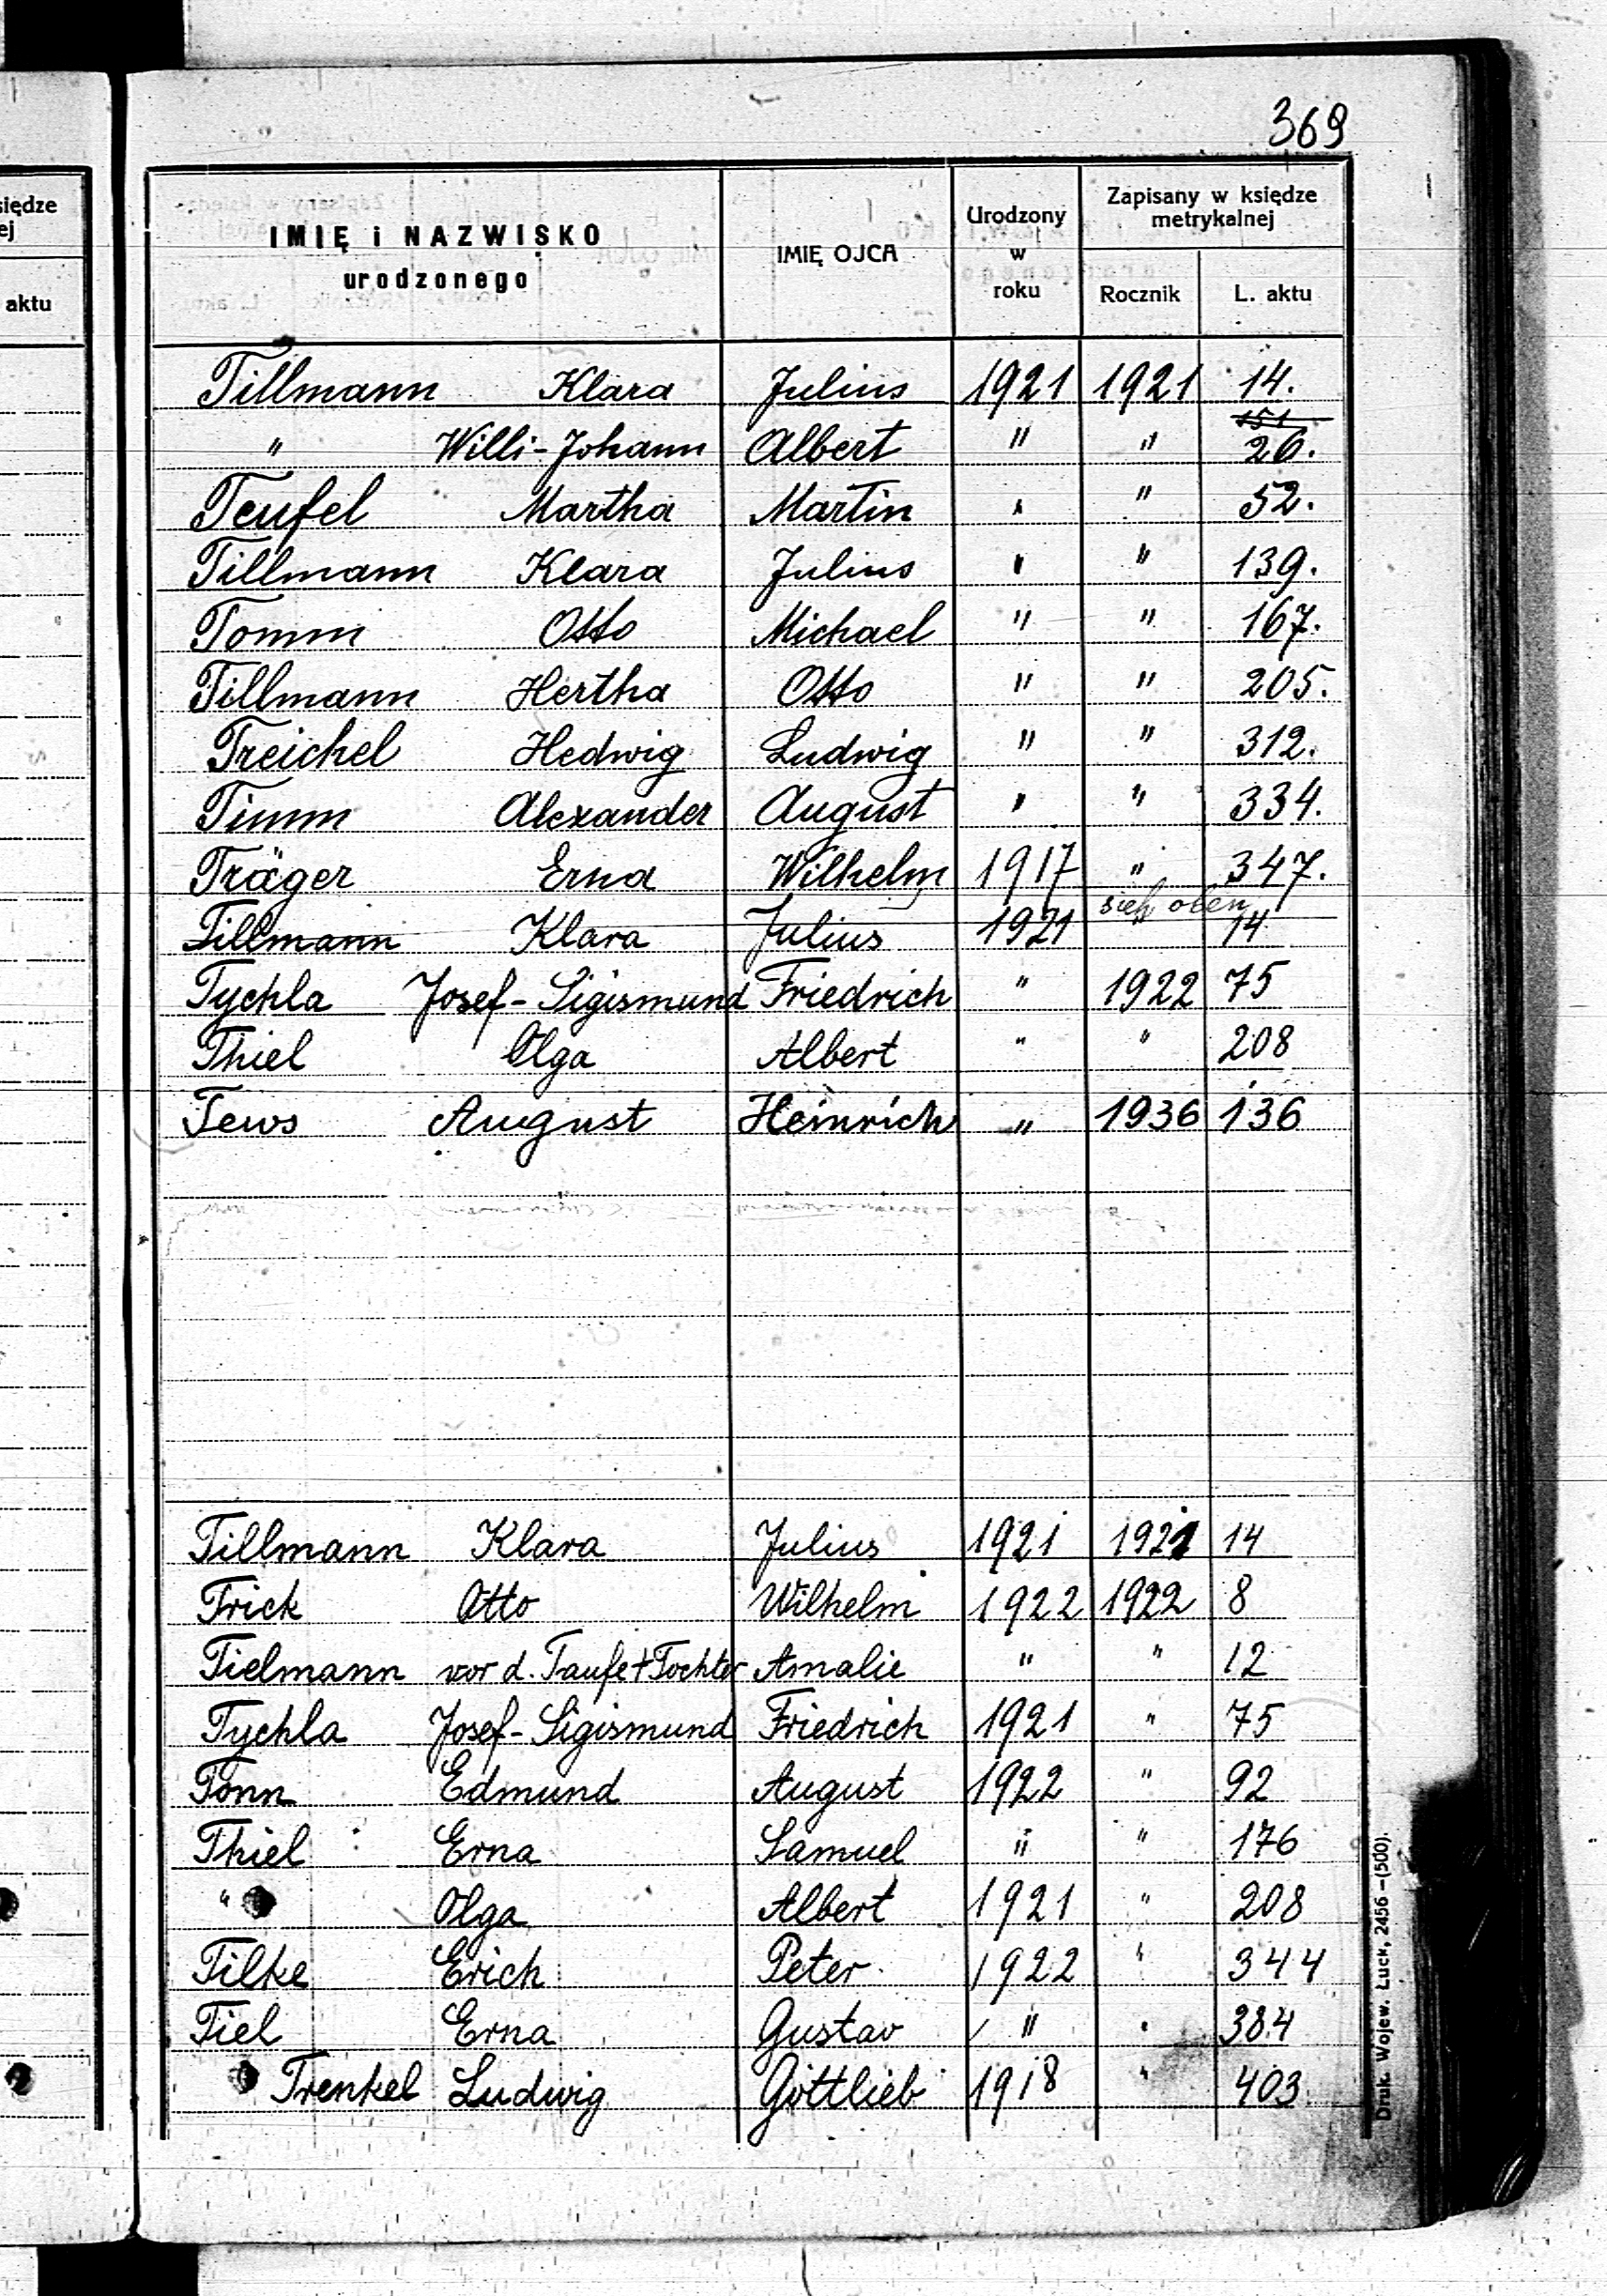 369
siędze
ej
aktu
IMIĘ i NAZWISKO
urodzonego
IMIĘ OJCA
Urodzony
w
roku
Zapisany w księdze
metrykalnej
Rocznik
L. aktu
Tillmann Klara Julius 1921 1921 14.
151
" Willi-Johann Albert " " 26.
Teufel Martha Martin " " 52.
Tillmann Klara Julius " " 139.
Tomm Otto Michael " " 167.
Tillmann Hertha Otto " " 205.
Treichel Hedwig Ludwig " " 312.
Timm Alexander August " " 334.
Träger Erna Wilhelm 1917 " 347.
sieh oben
Tillmann Klara Julius 1921 " 14
Tychla Josef-Sigismund Friedrich " 1922 75
Thiel Olga Albert " " 208
Tews August Heinrich " 1936 136
Tillmann Klara Julius 1921 1921 14
Trick Otto Wilhelm 1922 1922 8
Tielmann vor d. Taufe † Tochter Amalie " " 12
Tychla Josef-Sigismund Friedrich 1921 " 75
Tonn Edmund August 1922 " 92
Thiel Erna Samuel " " 176
" Olga Albert 1921 " 208
Tilke Erich Peter 1922 " 344
Tiel Erna Gustav " " 384
Trenkel Ludwig Gottlieb 1918 " 403
Druk. Wojew. Łuck, 2456—(500).